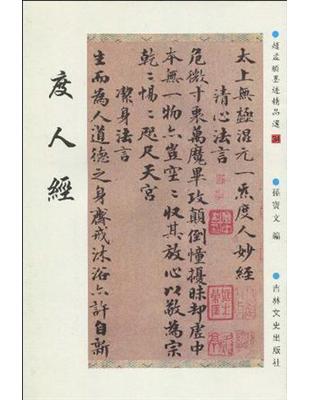 趙孟頫墨迹精品選 34
孫寶文 編
吉林文史出版社
太上無極混元一炁度人妙經
清心法言
危微寸衷萬魔畢攻顛倒憧擾昧却虛中
本無一物亦豈空々收其放心以敬為宗
乾々惕々咫尺天宮
潔身法言
生而為人道德之身齋戒沐浴亦許自新
度人經